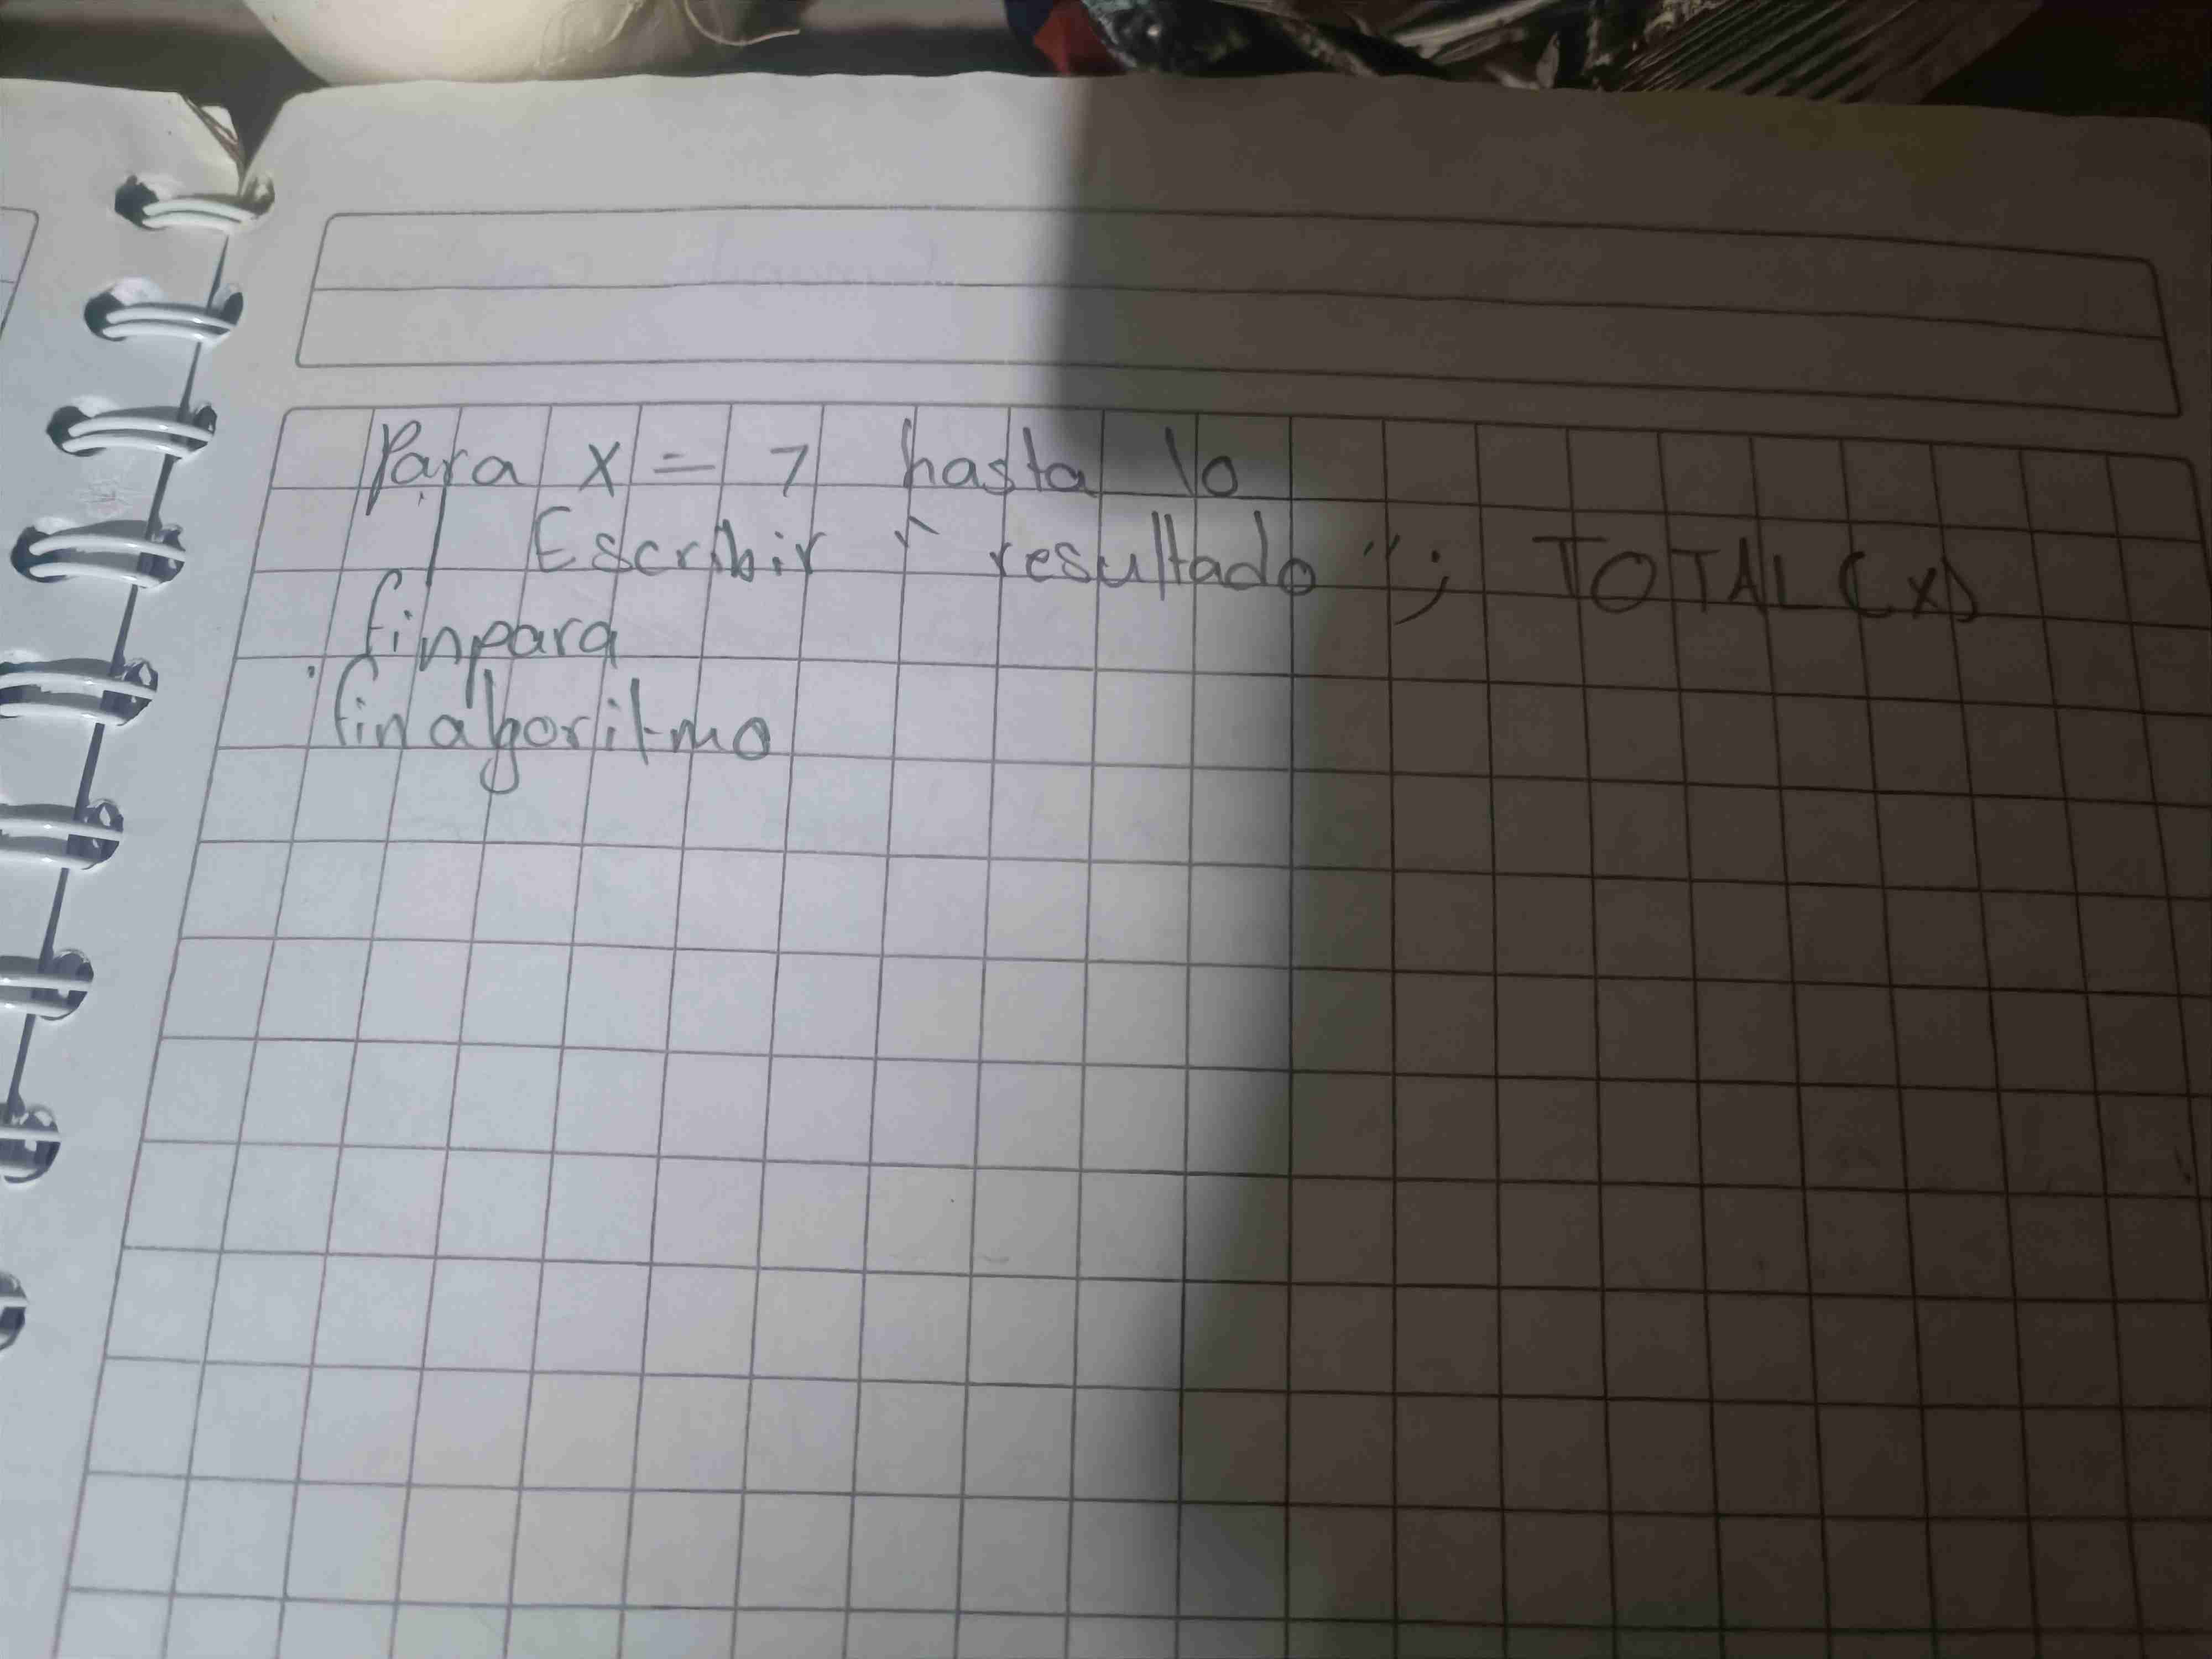 Para x = 7 hasta 10
Escribir " resultado "; TOTAL (x)
finpara
finalgoritmo